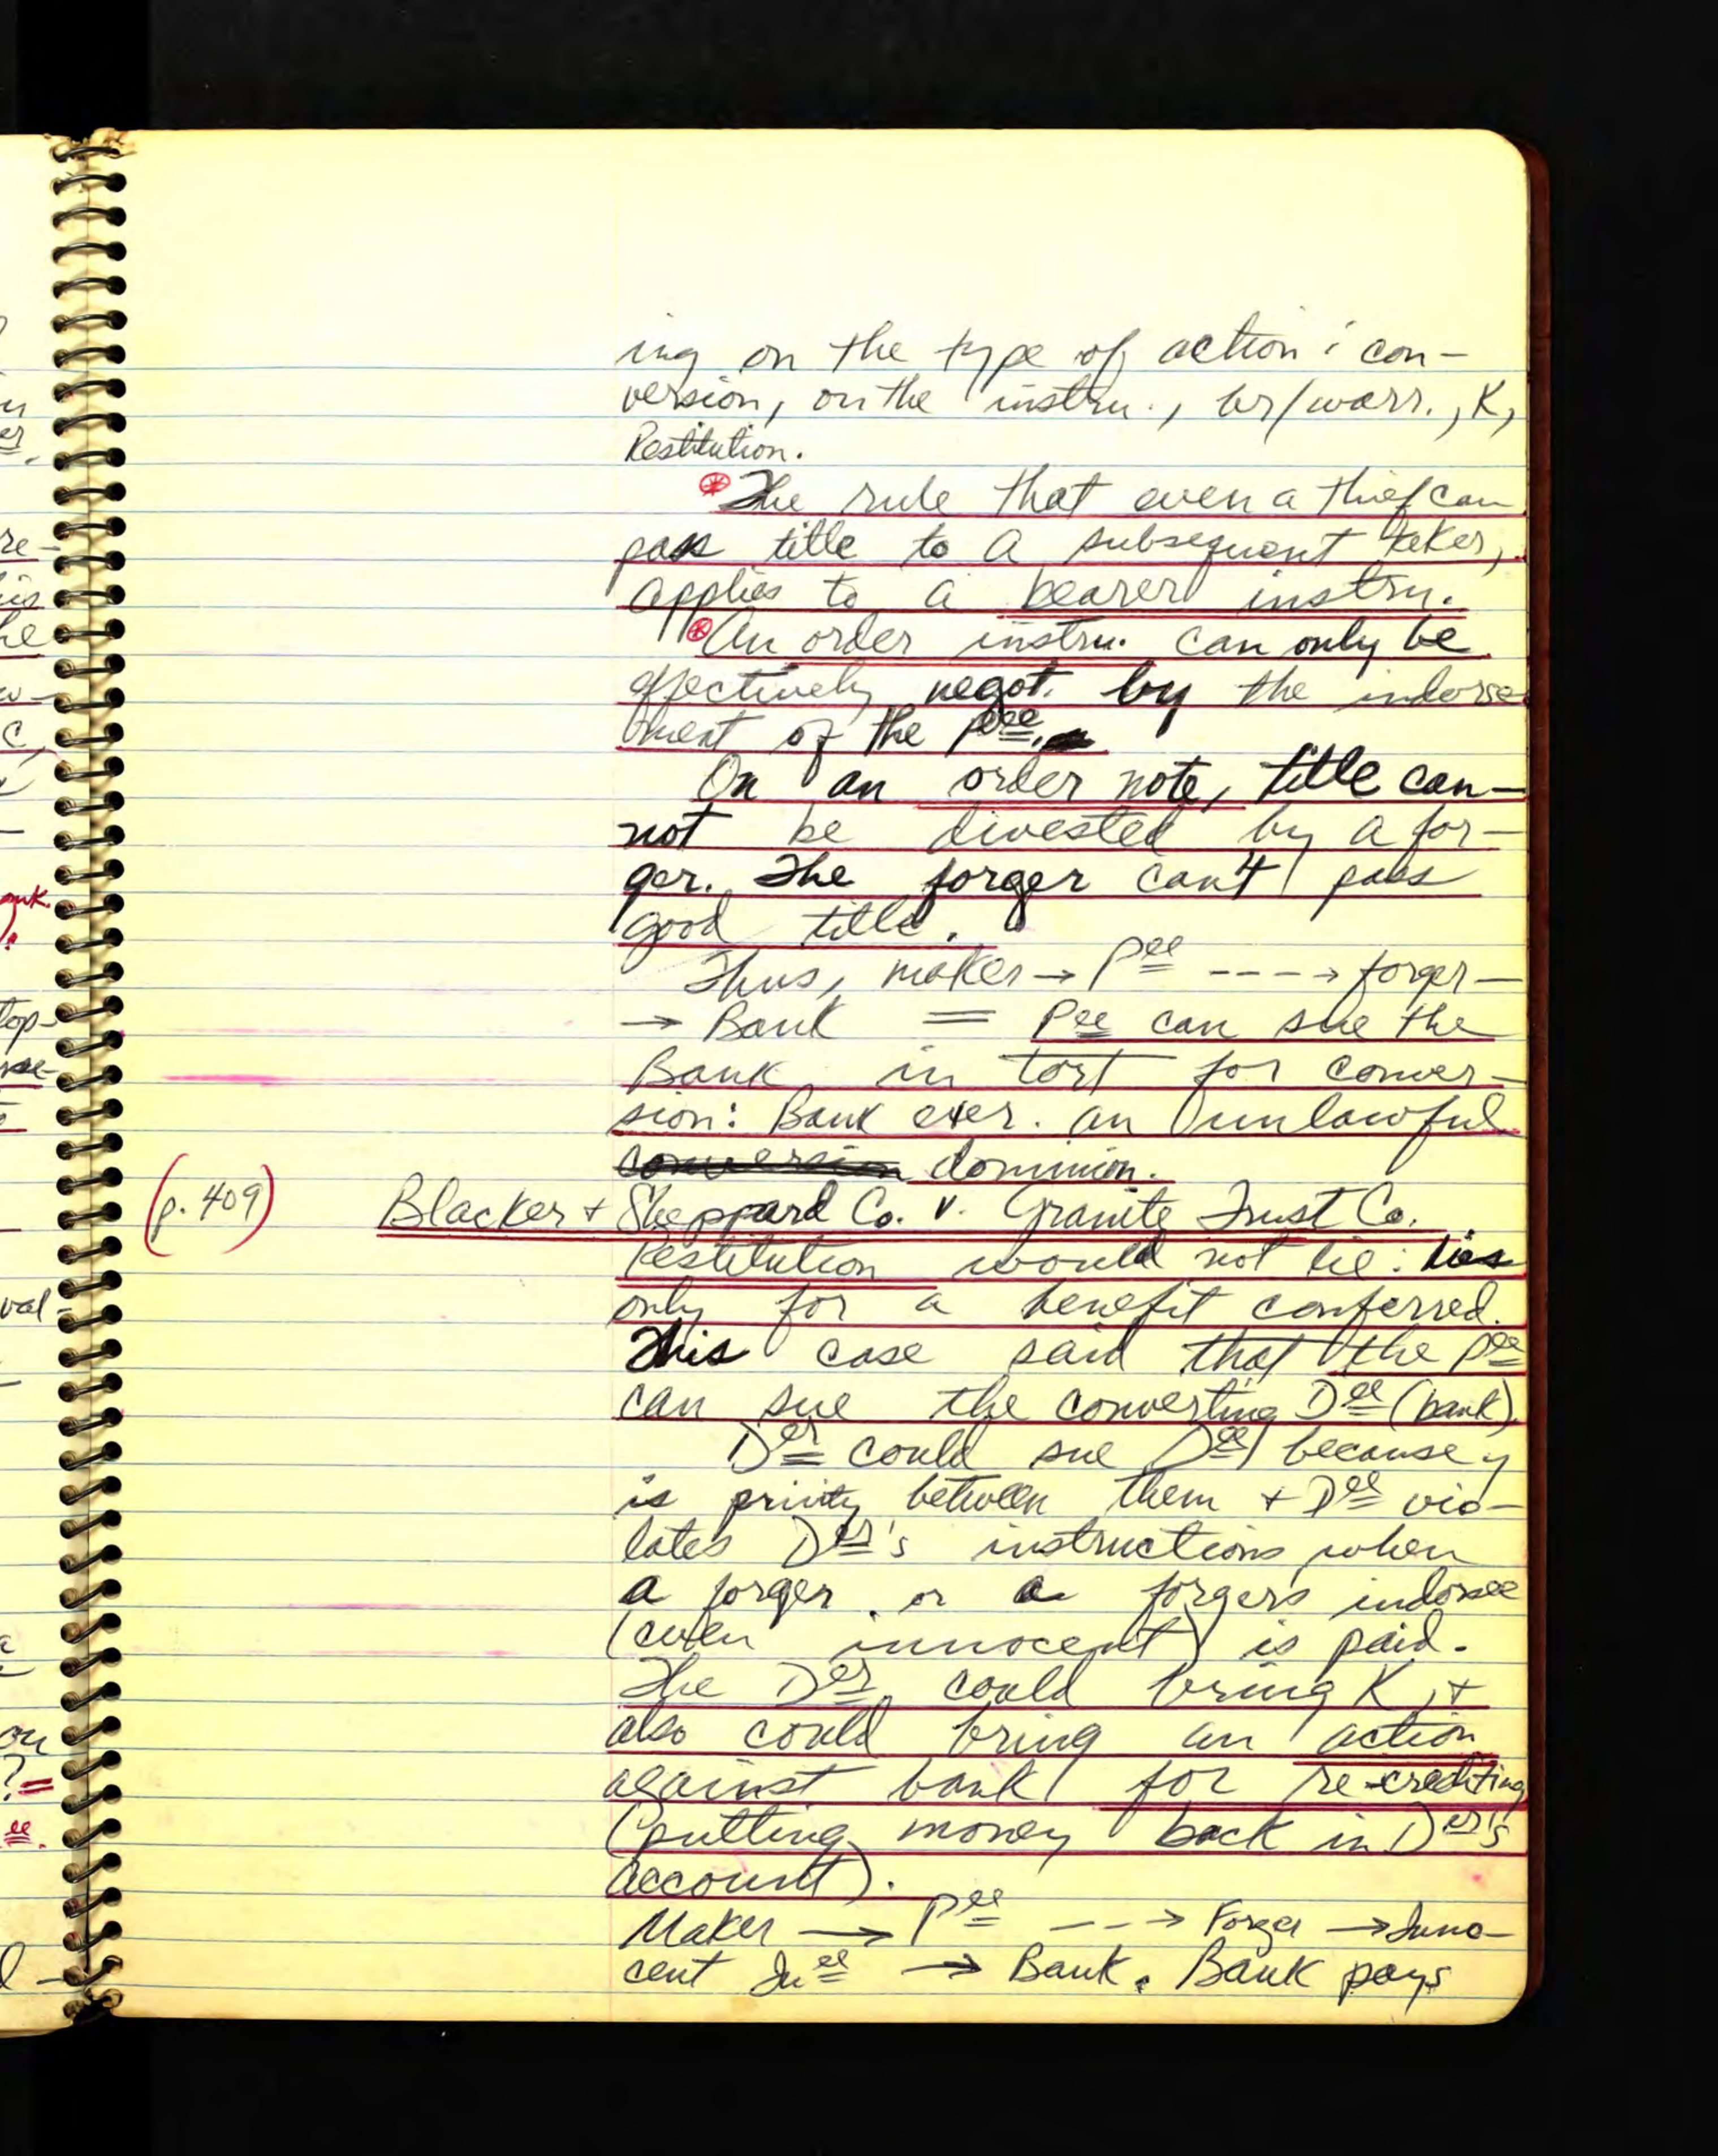 ing on the type of action: con-
version, on the instru., br/warr., K,
Restitution.
⊛The rule that even a thief can
pass title to a subsequent taker,
applies to a bearer instru.
⊛An order instru. can only be
effectively negot. by the indorse-
ment of the Pee.
On an order note, title can-
not be divested by a for-
ger. The forger can't pass
good title.
Thus, maker → Pee ---→ forger —
→ Bank = Pee can sue the
Bank in tort for conver-
sion: Bank exer. an unlawful
conversion dominion.
(p. 409) Blacker + Sheppard Co. v. Granite Trust Co.
Restitution would not lie: lies
only for a benefit conferred.
This case said that the Pee
can sue the converting Dee (bank).
Der could sue Dee because
is privity between them + Dee vio-
lates Der's instructions when
a forger or a forgers indorsee
(even innocent) is paid.
The Der could bring K, +
also could bring an action
against bank for re-crediting
(putting money back in Der's
account).
Maker → Pee --→ Forger → Inno-
cent Inee → Bank. Bank pays